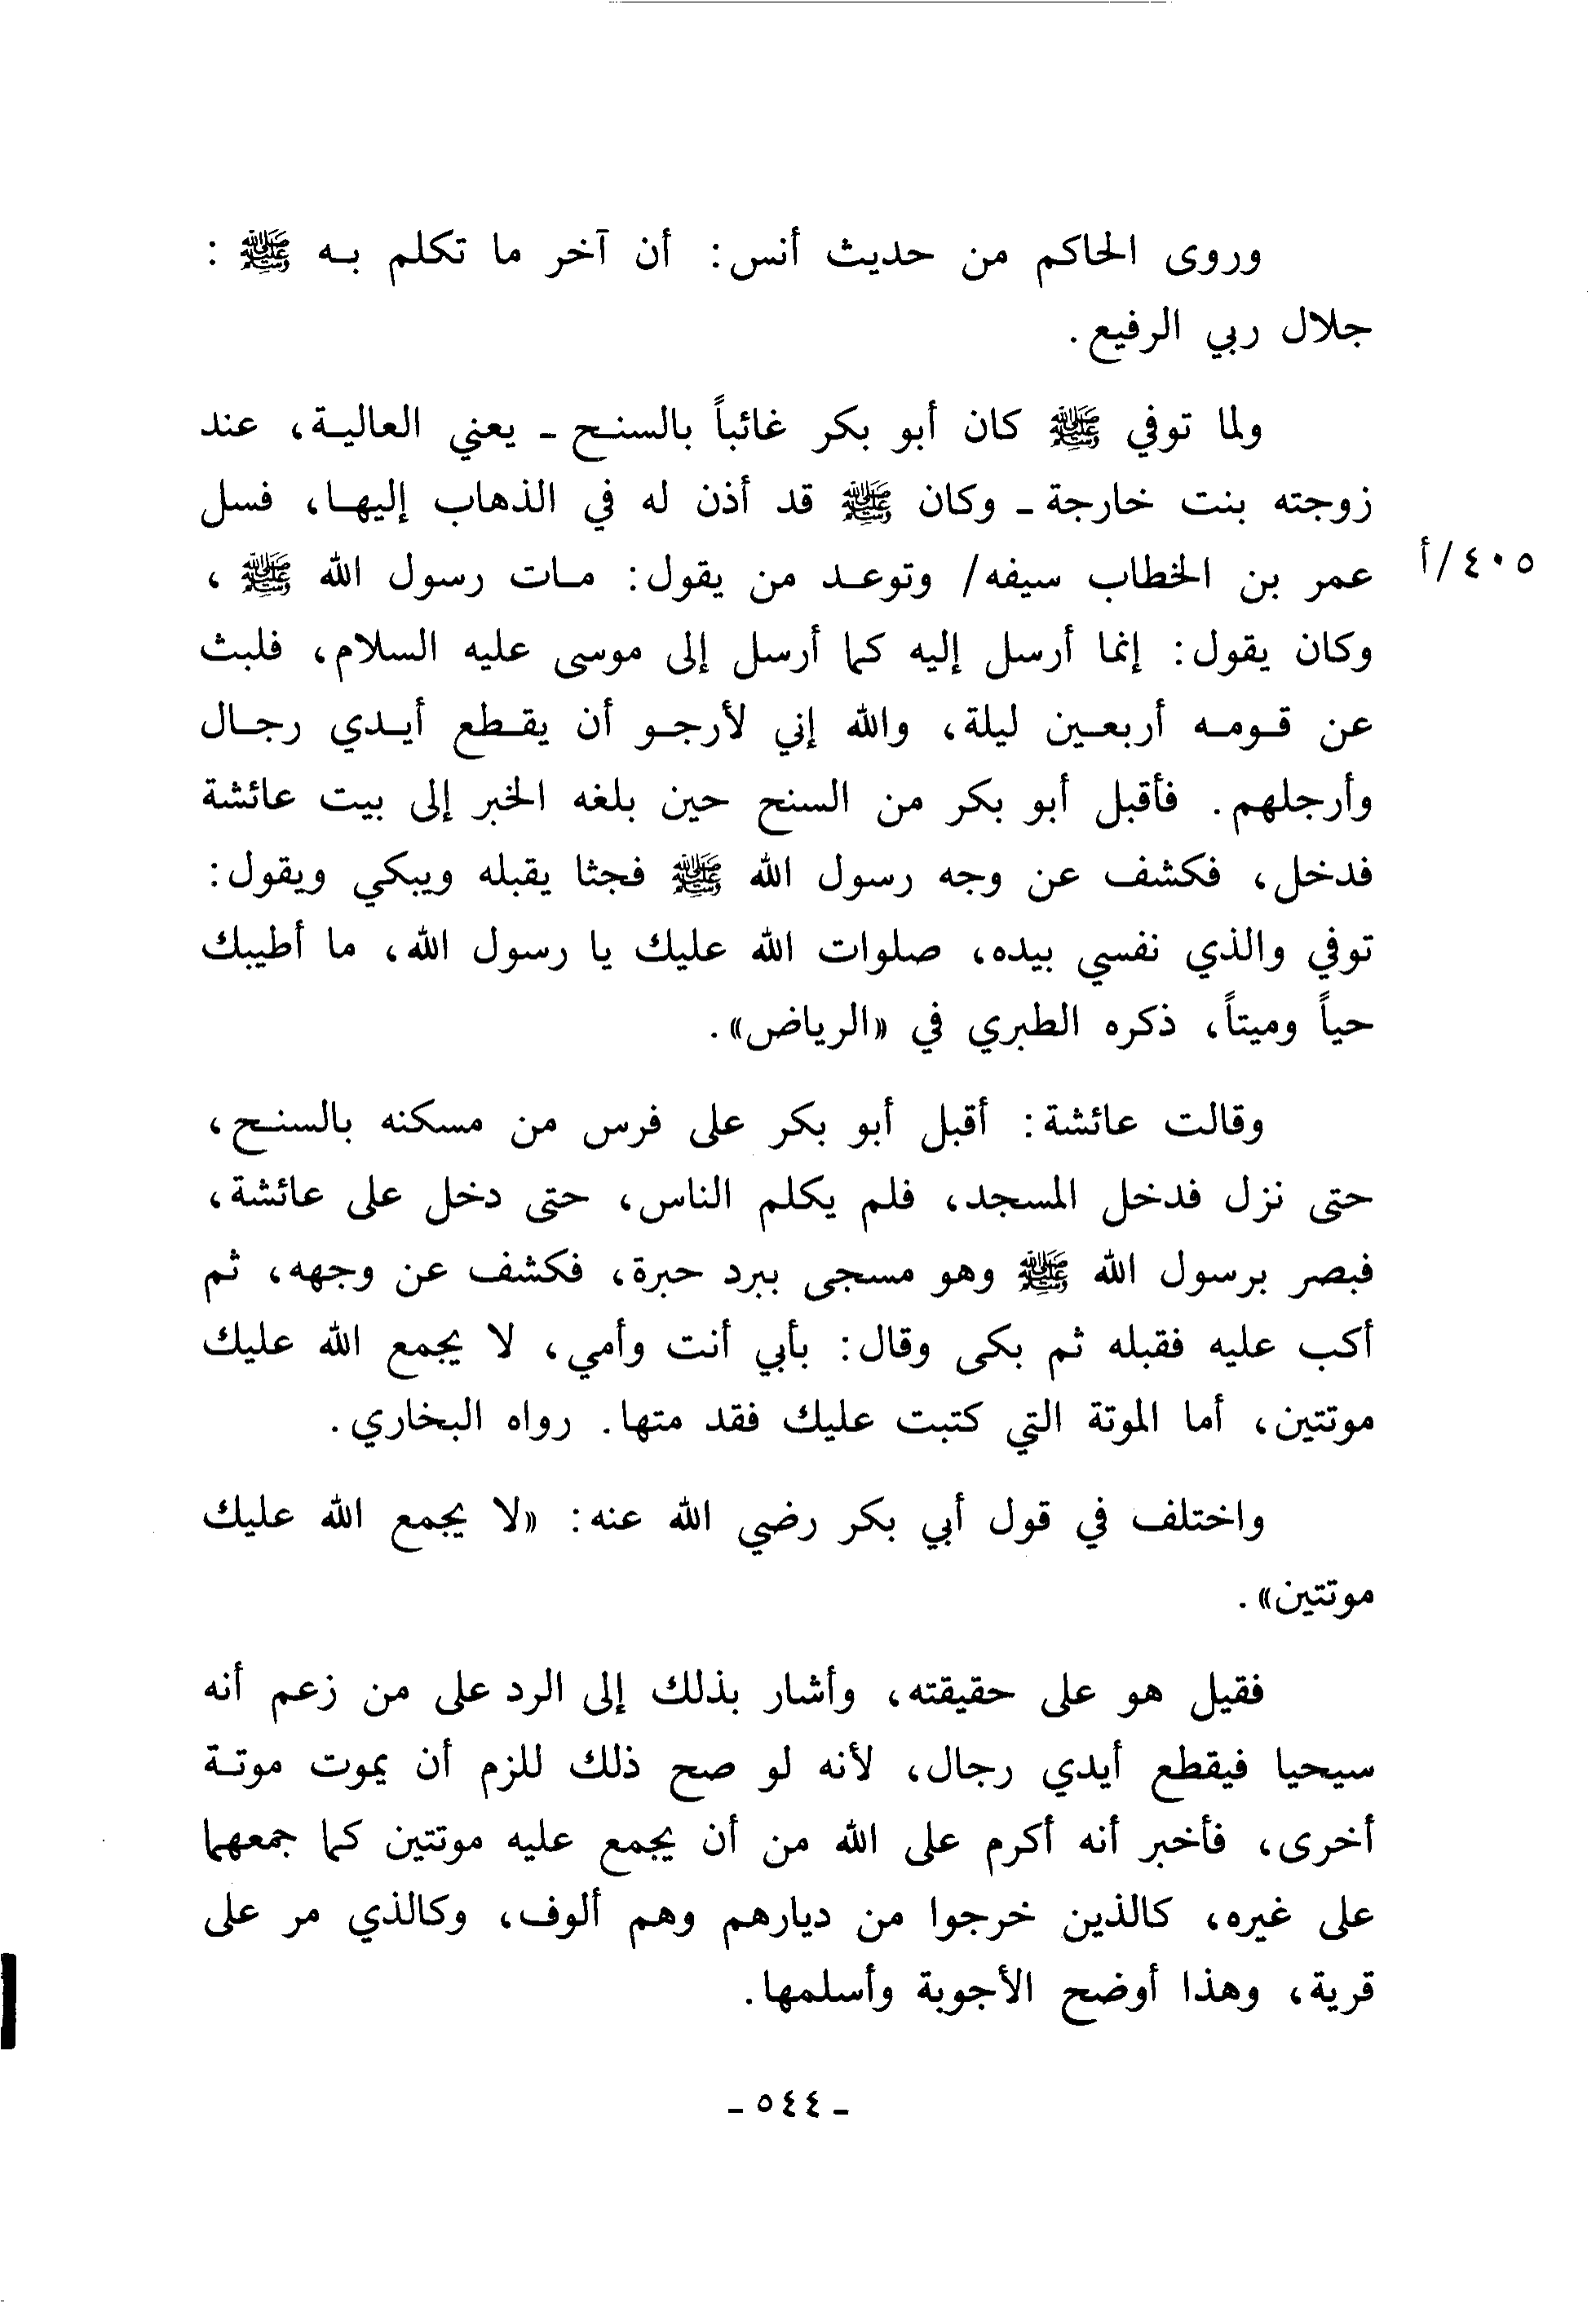 وروى الحاكم من حديث أنس: أن آخر ما تكلم بـه ﷺ :
جلال ربي الرفيع.
ولما توفي ﷺ كان أبو بكر غائباً بالسنـح - يعني العاليـة، عند
زوجته بنت خارجة - وكان ﷺ قد أذن له في الذهاب إليهـا، فسل
عمر بن الخطاب سيفه/ وتوعـد من يقول: مـات رسول الله ﷺ ،
٤٠٥/أ
وكان يقول: إنما أرسل إليه كما أرسل إلى موسى عليه السلام، فلبث
عن قـومـه أربعـين ليلة، والله إني لأرجـو أن يقـطع أيـدي رجـال
وأرجلهم. فأقبل أبو بكر من السنح حين بلغه الخبر إلى بيت عائشة
فدخل، فكشف عن وجه رسول الله ﷺ فجثا يقبله ويبكي ويقول:
توفي والذي نفسي بيده، صلوات الله عليك يا رسول الله، ما أطيبك
حياً وميتاً، ذكره الطبري في «الرياض».
وقالت عائشة: أقبل أبو بكر على فرس من مسكنه بالسنـح،
حتى نزل فدخل المسجد، فلم يكلم الناس، حتى دخل على عائشة،
فبصر برسول الله ﷺ وهو مسجى ببرد حبرة، فكشف عن وجهه، ثم
أكب عليه فقبله ثم بكى وقال: بأبي أنت وأمي، لا يجمع الله عليك
موتتين، أما الموتة التي كتبت عليك فقد متها. رواه البخاري.
واختلف في قول أبي بكر رضي الله عنه: «لا يجمع الله عليك
موتتين».
فقيل هو على حقيقته، وأشار بذلك إلى الرد على من زعم أنه
سيحيا فيقطع أيدي رجال، لأنه لو صح ذلك للزم أن يموت موتـة
أخرى، فأخبر أنه أكرم على الله من أن يجمع عليه موتتين كما جمعهما
على غيره، كالذين خرجوا من ديارهم وهم ألوف، وكالذي مر على
قرية، وهذا أوضح الأجوبة وأسلمها.
- ٥٤٤ -